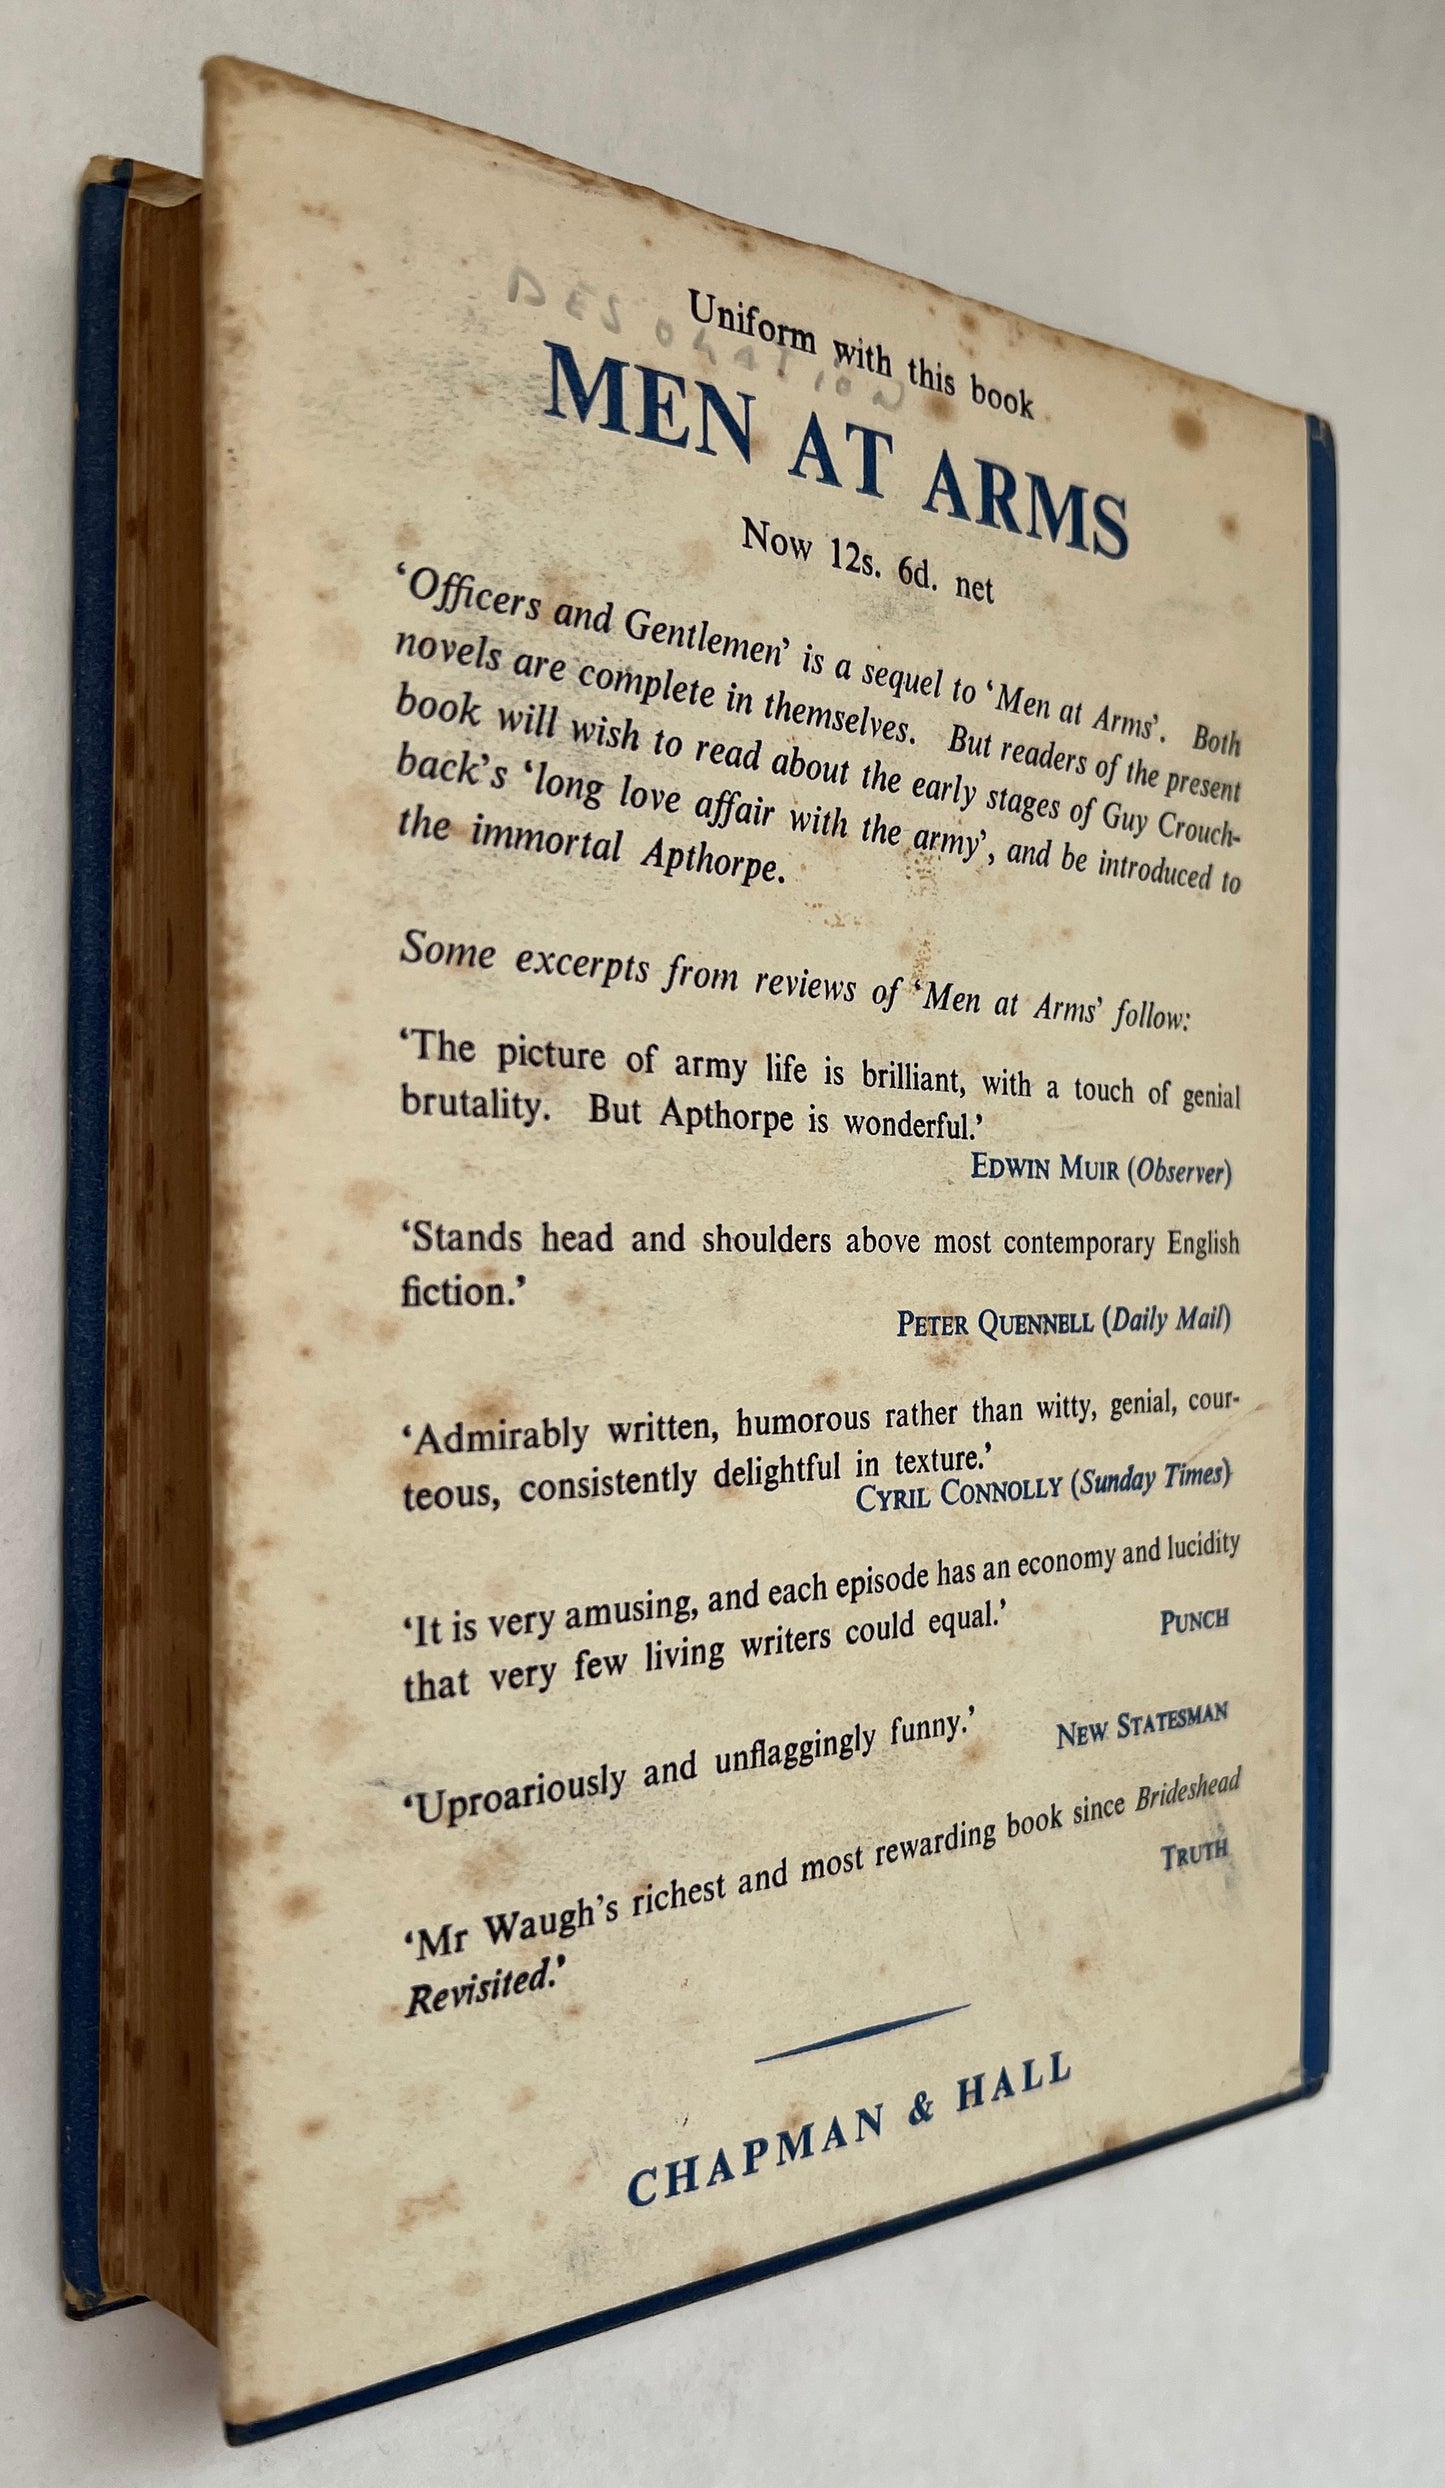 Uniform with this book
MEN AT ARMS
Now 12s. 6d. net
‘Officers and Gentlemen’ is a sequel to ‘Men at Arms’. Both
novels are complete in themselves. But readers of the present
book will wish to read about the early stages of Guy Crouch-
back’s ‘long love affair with the army’, and be introduced to
the immortal Apthorpe.
Some excerpts from reviews of ‘Men at Arms’ follow:
‘The picture of army life is brilliant, with a touch of genial
brutality. But Apthorpe is wonderful.’
EDWIN MUIR (Observer)
‘Stands head and shoulders above most contemporary English
fiction.’
PETER QUENNELL (Daily Mail)
‘Admirably written, humorous rather than witty, genial, cour-
teous, consistently delightful in texture.’
CYRIL CONNOLLY (Sunday Times)
‘It is very amusing, and each episode has an economy and lucidity
that very few living writers could equal.’
PUNCH
‘Uproariously and unflaggingly funny.’
NEW STATESMAN
‘Mr Waugh’s richest and most rewarding book since Brideshead
Revisited.’
TRUTH
CHAPMAN & HALL